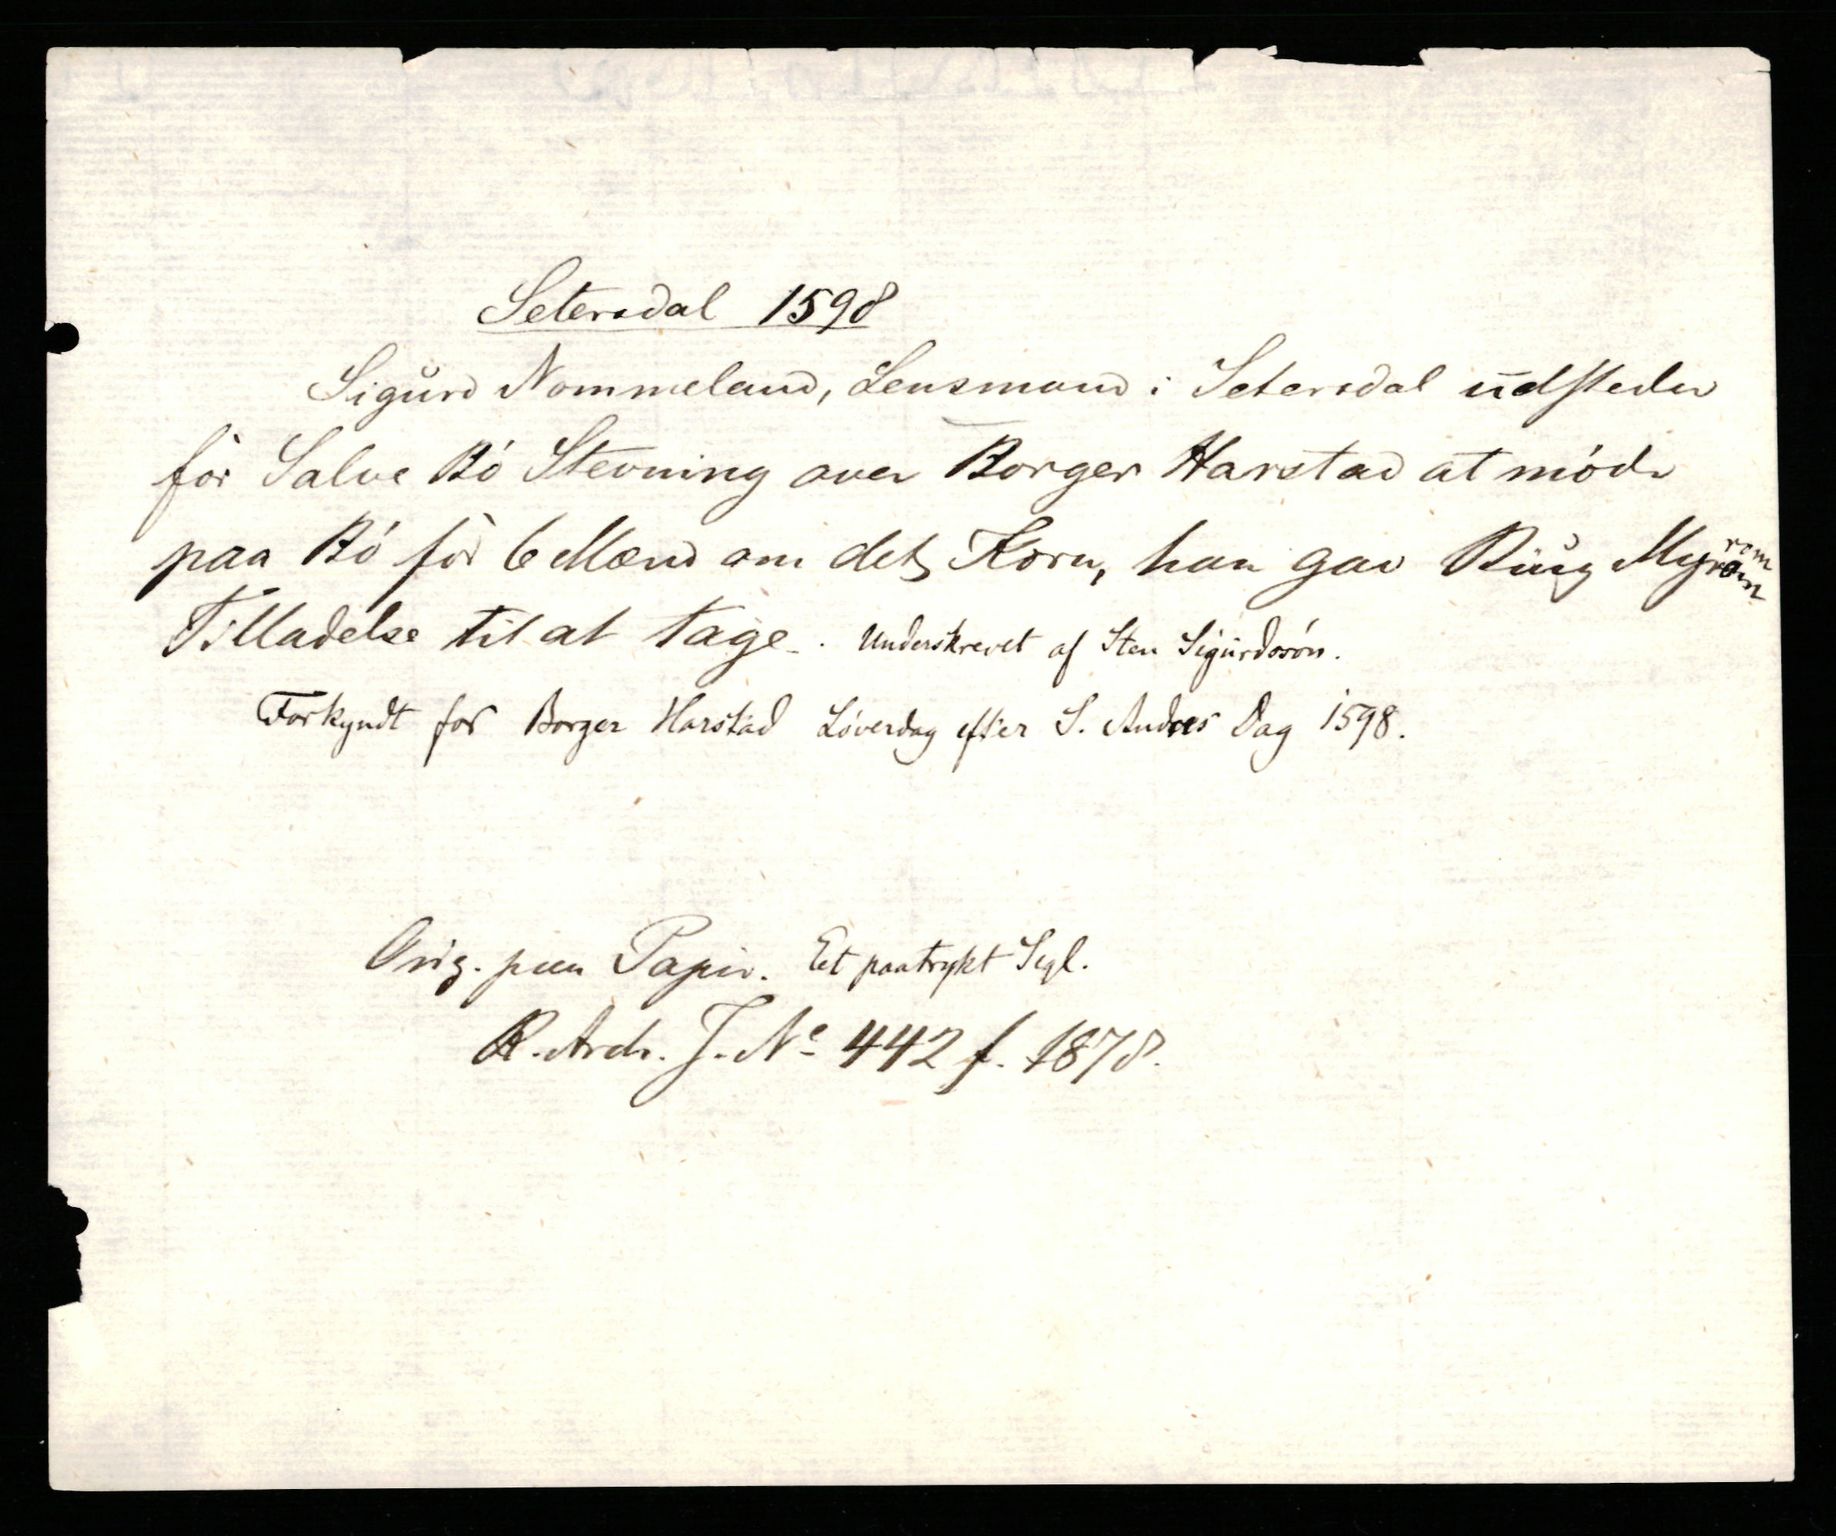 Setersdal 1598
Sigurd Nommeland, Lensmand i Setersdal udsteder
för Salve Bö Stevning over Borger Harstad at möde
paa Bö för 6 Mænd om det Korn, han gav Müg Myrom
Tilladelse til at tage. Underskrevet af Sten Sigurdssön.
Forkyndt for Borger Harstad Löverdag efter S. Andres Dag 1598.
Orig. paa Papir. Eet paatrykt Segl.
R. Arch. J. No 442 f. 1878.